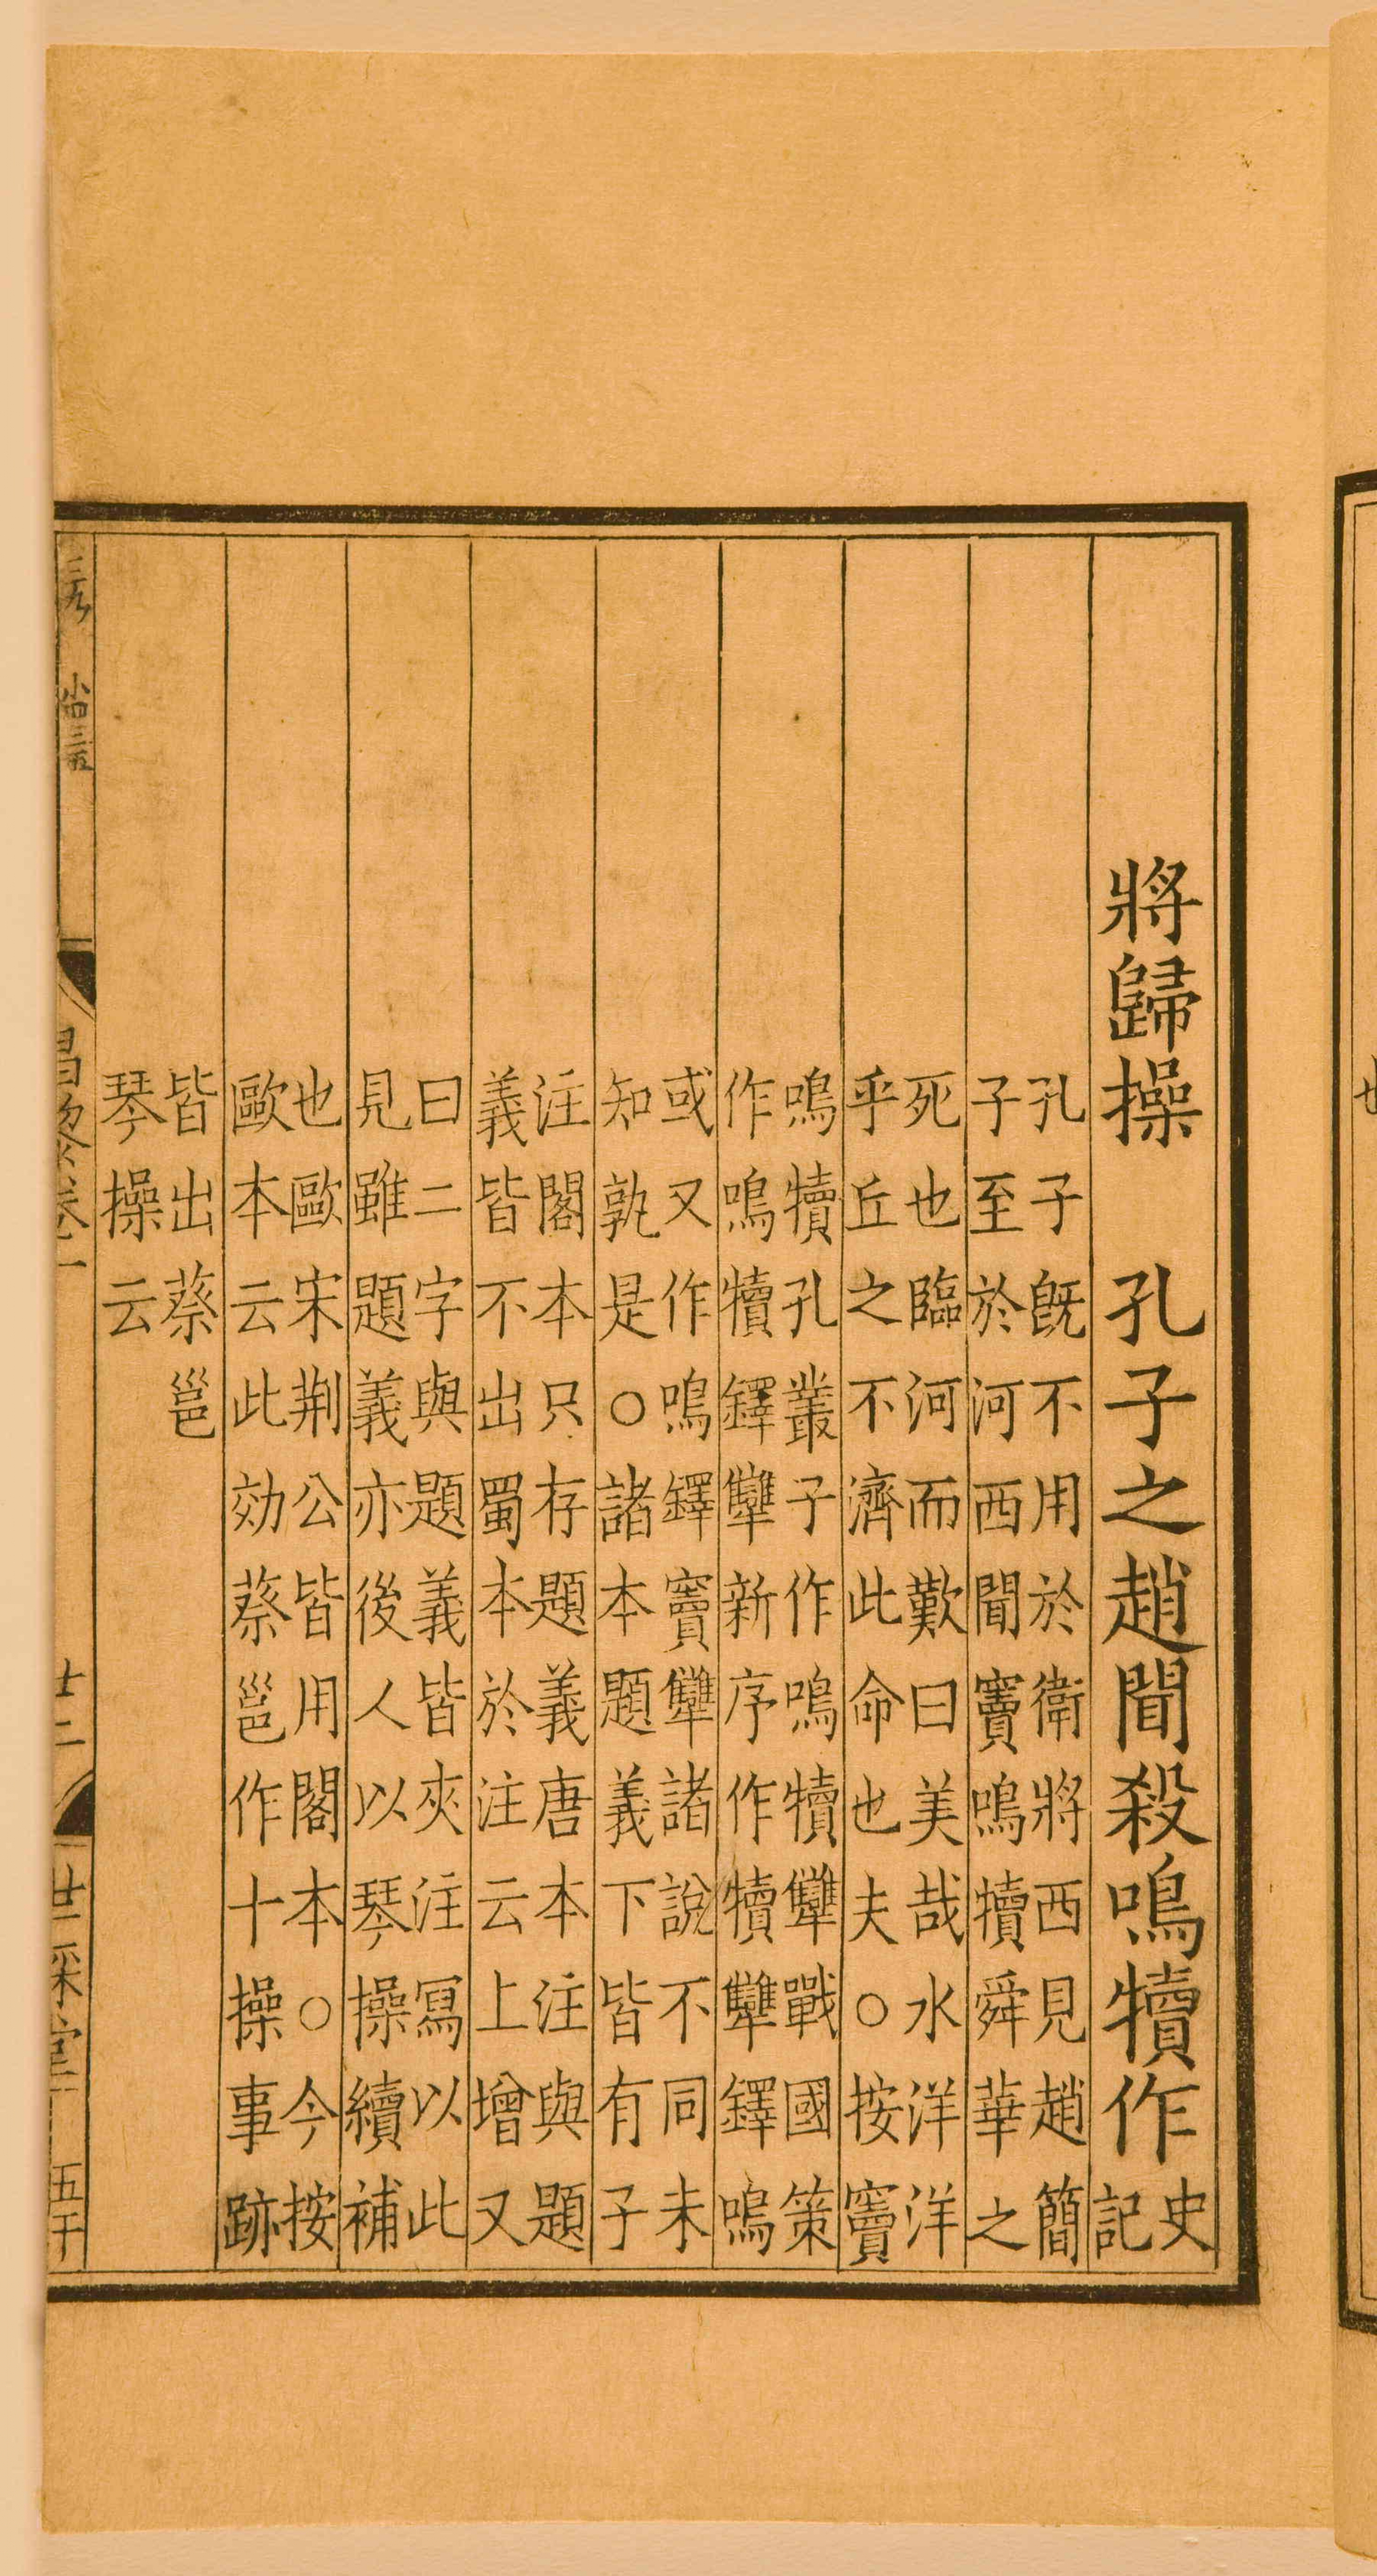 將歸操　孔子之趙聞殺鳴犢作史
記
孔子既不用於衛將西見趙簡
子至於河西聞竇鳴犢舜華之
死也臨河而歎曰美哉水洋洋
乎丘之不濟此命也夫○按竇
鳴犢孔叢子作鳴犢犨戰國策
作鳴犢鐸犨新序作犢犨鐸鳴
或又作鳴鐸竇犨諸說不同未
知孰是○諸本題義下皆有子
注閣本只存題義唐本注與題
義皆不出蜀本於注云上增又
曰二字與題義皆夾注寫以此
見雖題義亦後人以琴操續補
也歐宋荆公皆用閣本○今按
歐本云此効蔡邕作十操事跡
皆出蔡邕
琴操云
昌黎卷一
十二
世綵堂